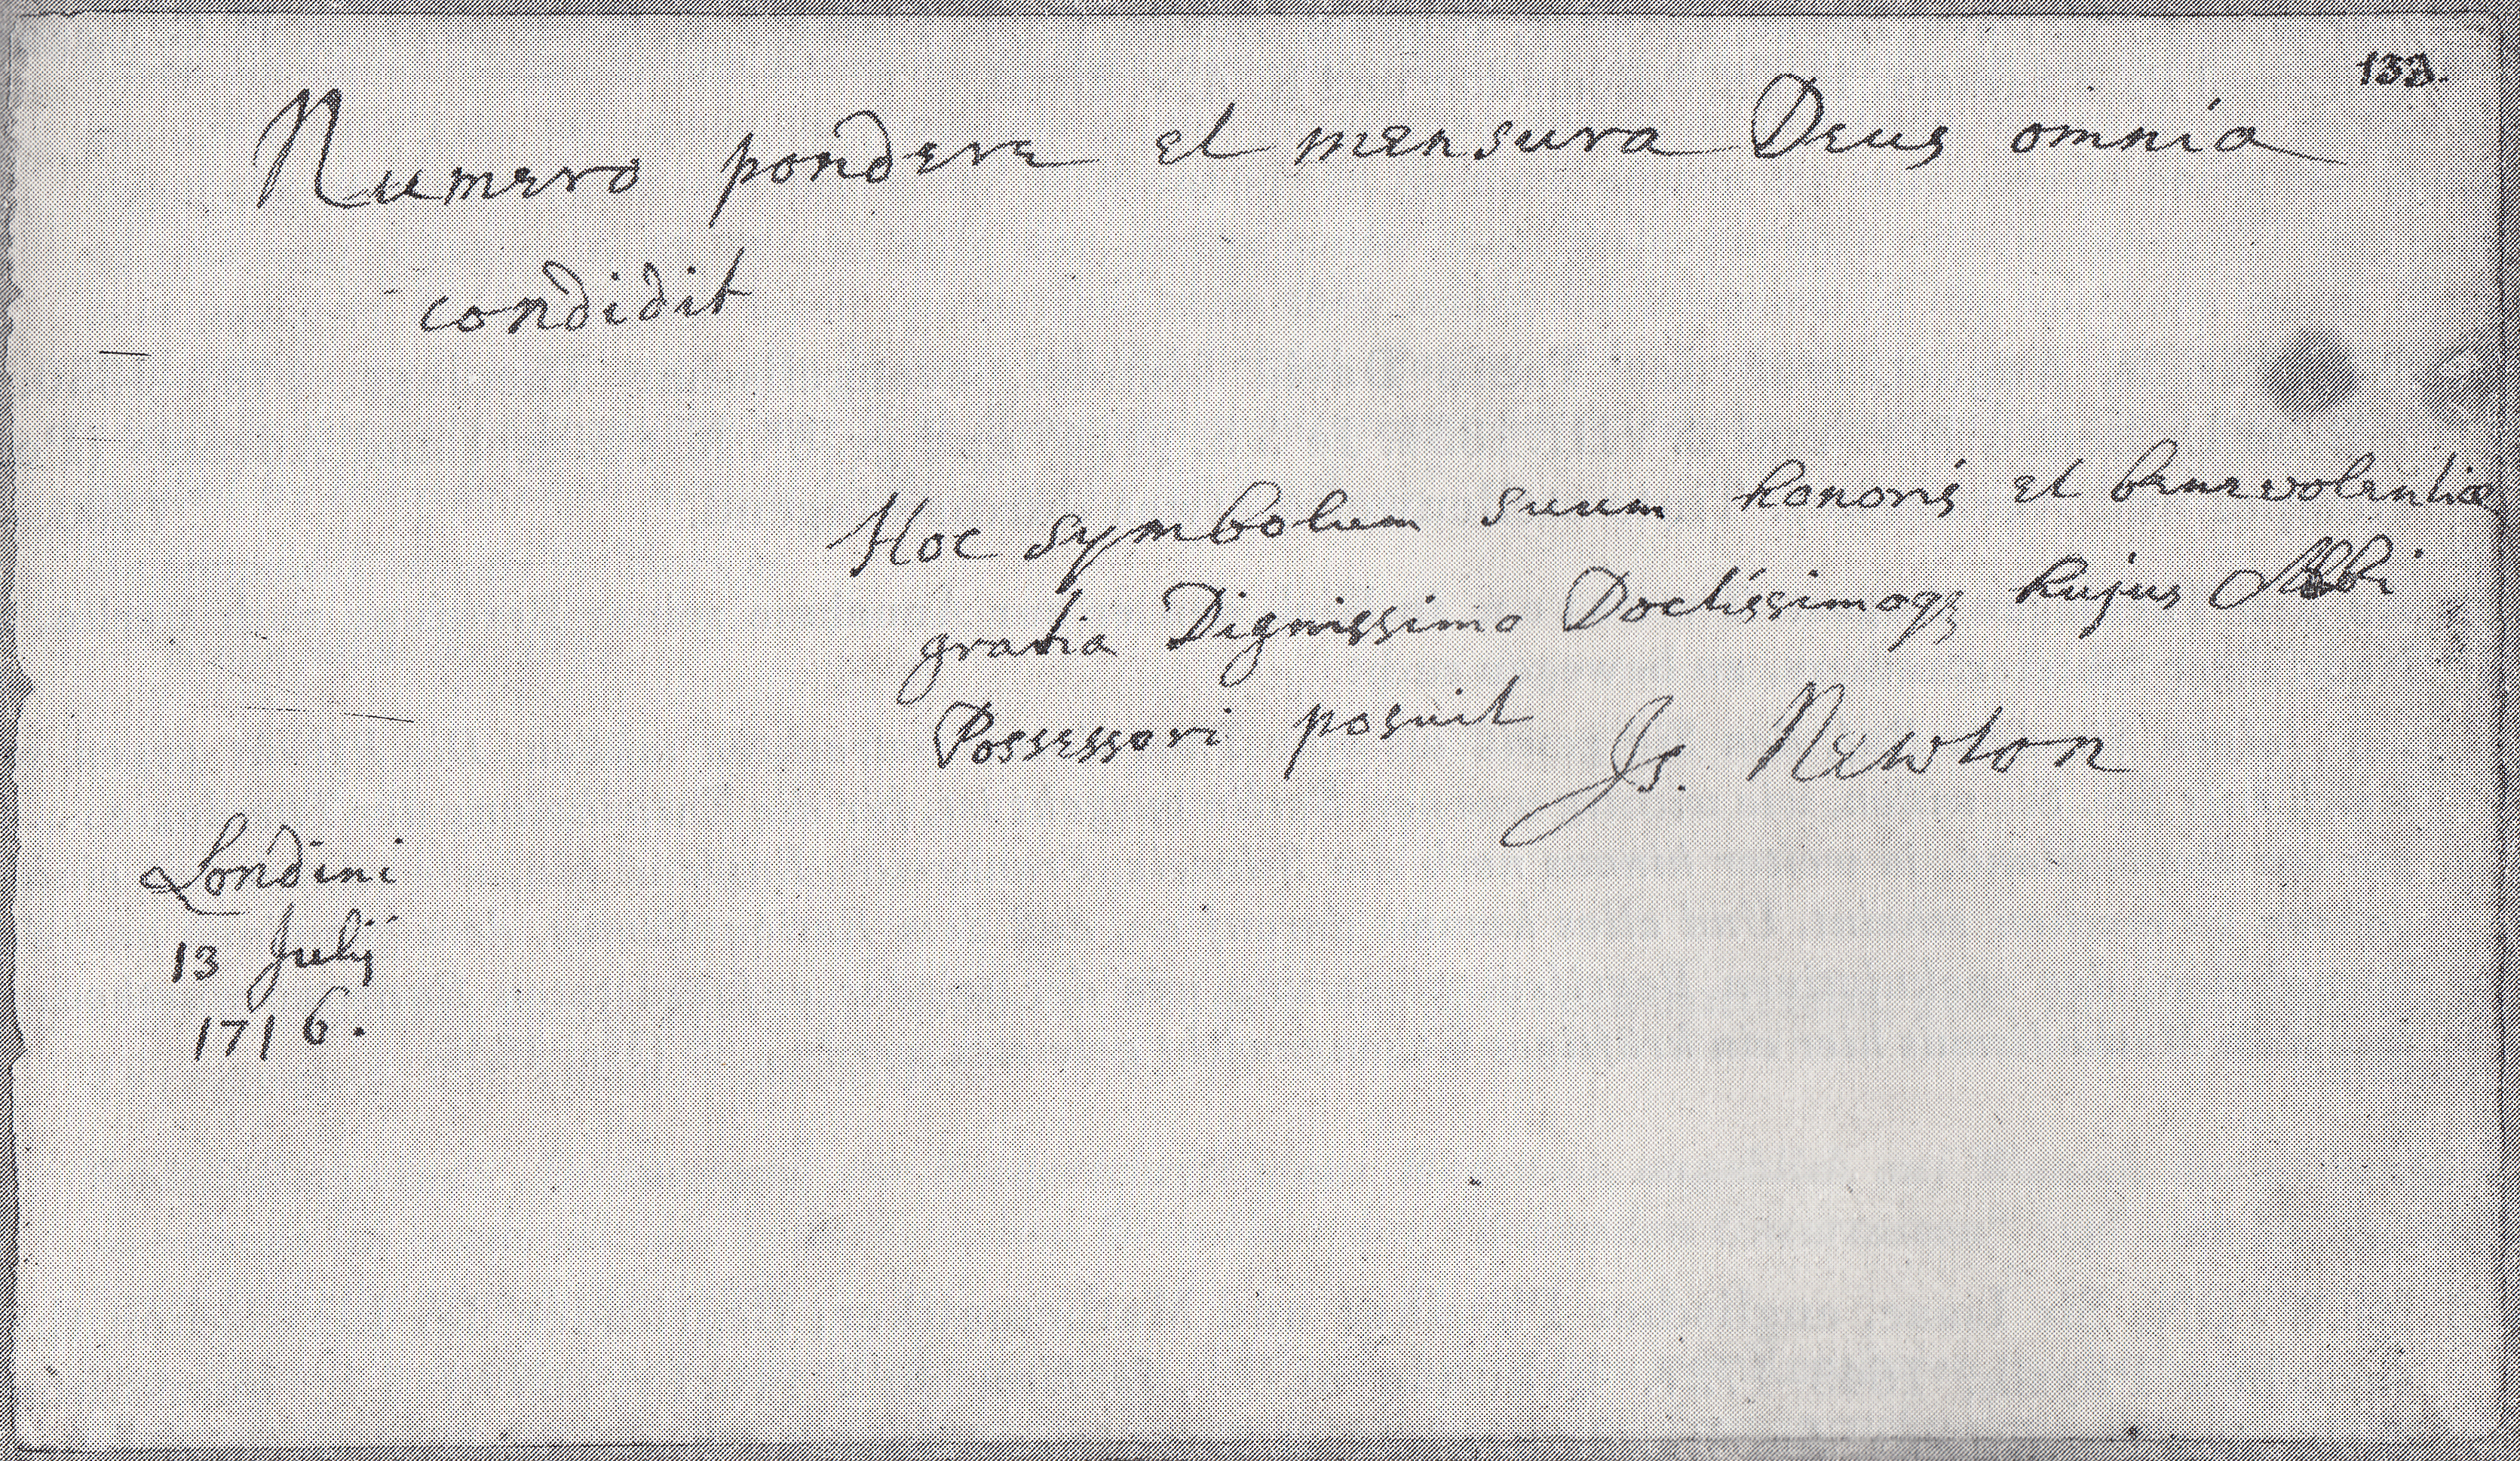 Numero pondere et mensura Deus omnia
condidit
Hoc symbolum suum honoris et benevolentiæ
gratia Dignissimo Doctissimoqꝫ hujus Albi
Possessori posuit
Is. Newton
Londini
13 Julij
1716.